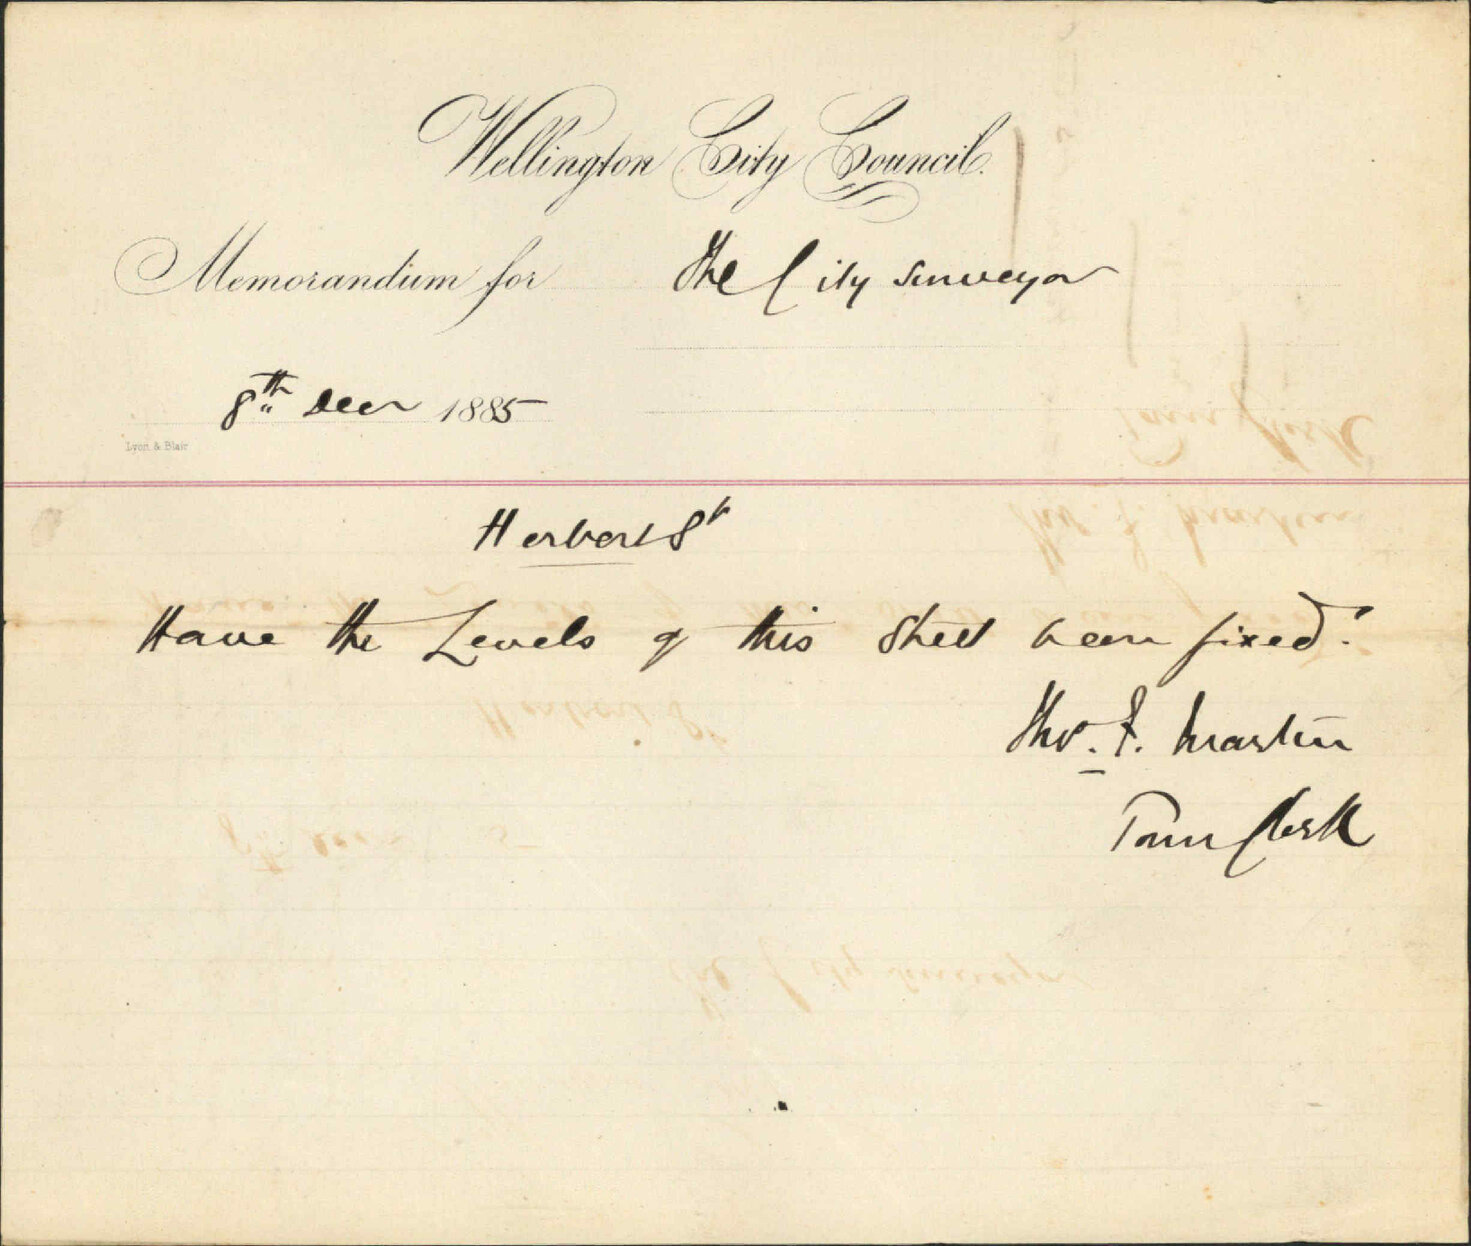 Wellington City Council.
Memorandum for The City Surveyor
8th Decr 1885
Lyon & Blair
Herbert St
Have the Levels of this Street been fixed?
Thos. F. Martin
Town Clerk